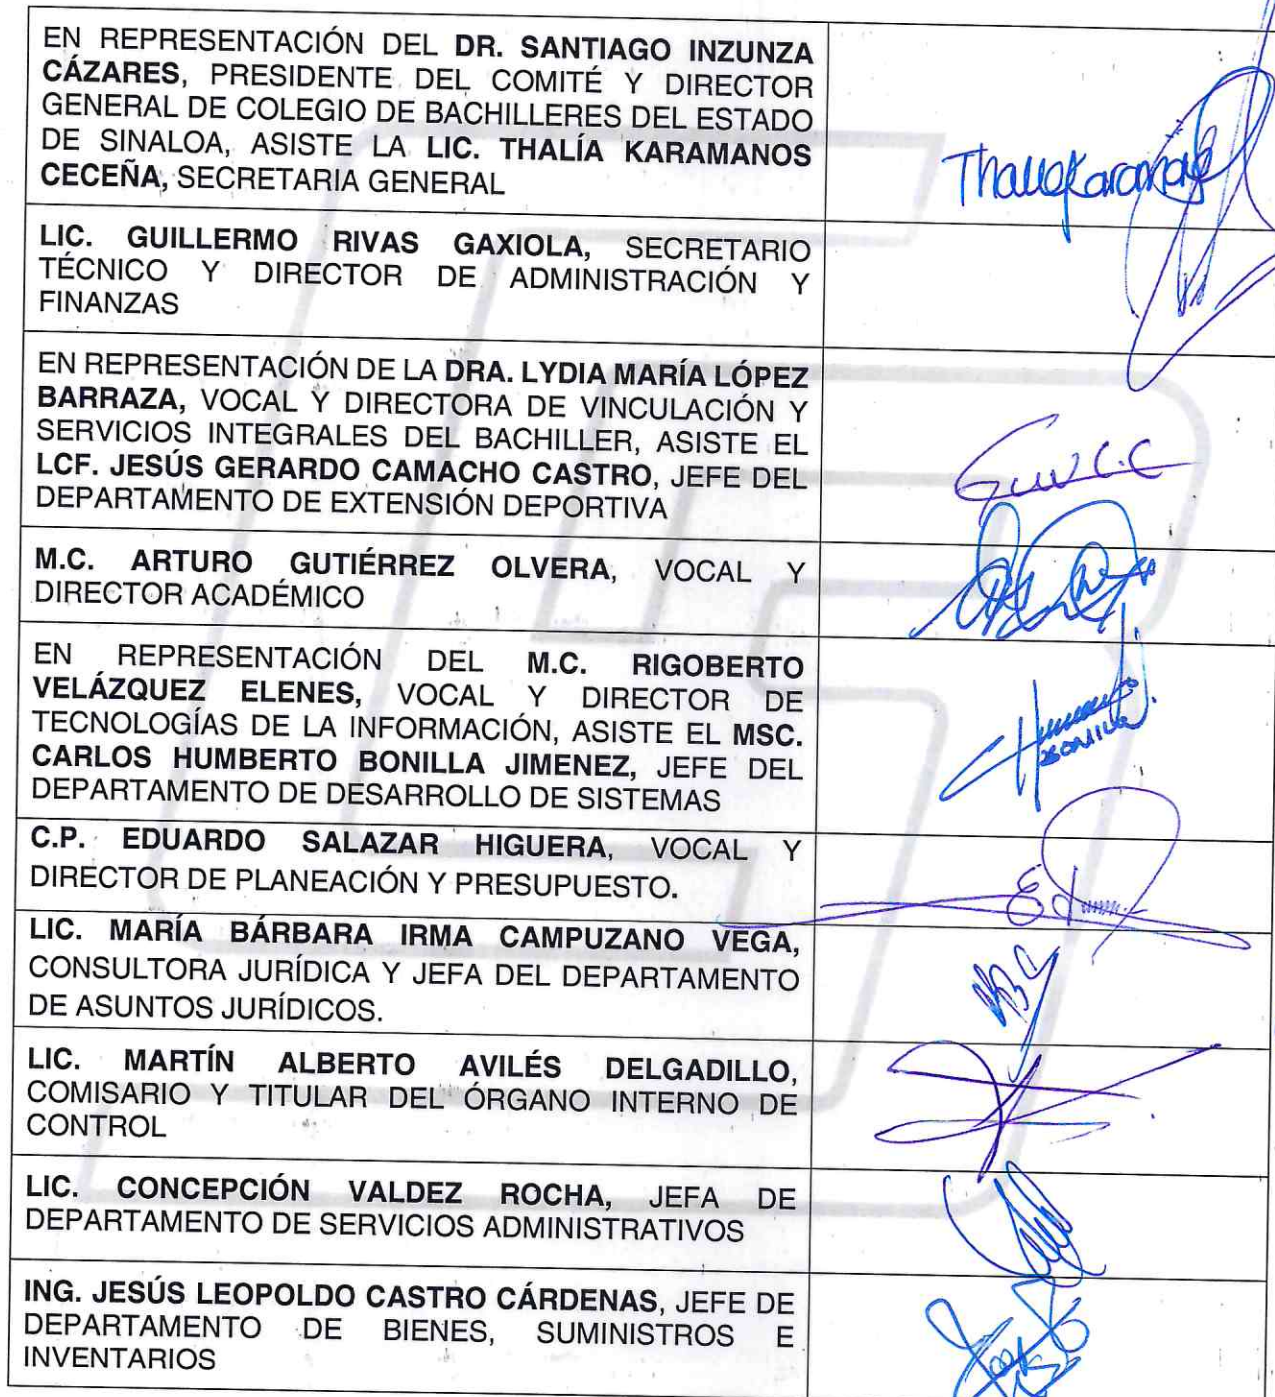 EN REPRESENTACIÓN DEL DR. SANTIAGO INZUNZA
CÁZARES, PRESIDENTE DEL COMITÉ Y DIRECTOR
GENERAL DE COLEGIO DE BACHILLERES DEL ESTADO
DE SINALOA, ASISTE LA LIC. THALÍA KARAMANOS
CECEÑA, SECRETARIA GENERAL
LIC. GUILLERMO RIVAS GAXIOLA, SECRETARIO
TÉCNICO Y DIRECTOR DE ADMINISTRACIÓN Y
FINANZAS
EN REPRESENTACIÓN DE LA DRA. LYDIA MARÍA LÓPEZ
BARRAZA, VOCAL Y DIRECTORA DE VINCULACIÓN Y
SERVICIOS INTEGRALES DEL BACHILLER, ASISTE EL
LCF. JESÚS GERARDO CAMACHO CASTRO, JEFE DEL
DEPARTAMENTO DE EXTENSIÓN DEPORTIVA
M.C. ARTURO GUTIÉRREZ OLVERA, VOCAL Y
DIRECTOR ACADÉMICO
EN REPRESENTACIÓN DEL M.C. RIGOBERTO
VELÁZQUEZ ELENES, VOCAL Y DIRECTOR DE
TECNOLOGÍAS DE LA INFORMACIÓN, ASISTE EL MSC.
CARLOS HUMBERTO BONILLA JIMENEZ, JEFE DEL
DEPARTAMENTO DE DESARROLLO DE SISTEMAS
C.P. EDUARDO SALAZAR HIGUERA, VOCAL Y
DIRECTOR DE PLANEACIÓN Y PRESUPUESTO.
LIC. MARÍA BÁRBARA IRMA CAMPUZANO VEGA,
CONSULTORA JURÍDICA Y JEFA DEL DEPARTAMENTO
DE ASUNTOS JURÍDICOS.
LIC. MARTÍN ALBERTO AVILÉS DELGADILLO,
COMISARIO Y TITULAR DEL ÓRGANO INTERNO DE
CONTROL
LIC. CONCEPCIÓN VALDEZ ROCHA, JEFA DE
DEPARTAMENTO DE SERVICIOS ADMINISTRATIVOS
ING. JESÚS LEOPOLDO CASTRO CÁRDENAS, JEFE DE
DEPARTAMENTO DE BIENES, SUMINISTROS E
INVENTARIOS